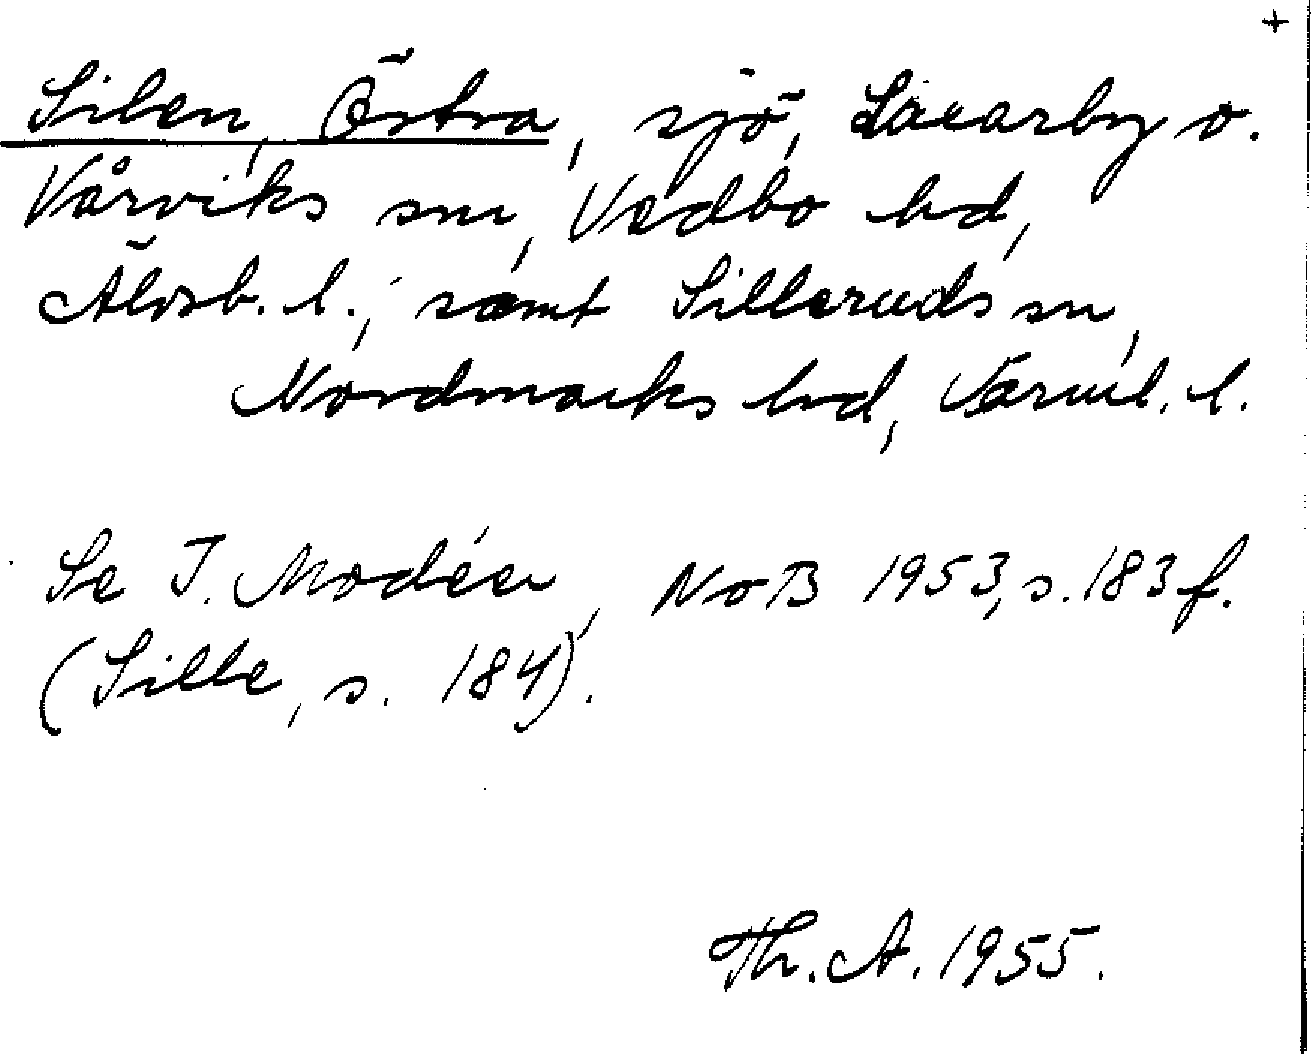 +
Silen, Östra, sjö, Läcarby o.
Vårviks snr, Vedbo hd,
Älvsb. l., samt Silleruds sn,
Nordmarks hd, Värml. l.
Se I. Modéer, NoB 1953, s. 183 f.
(Sille, s. 184).
Th. A. 1955.